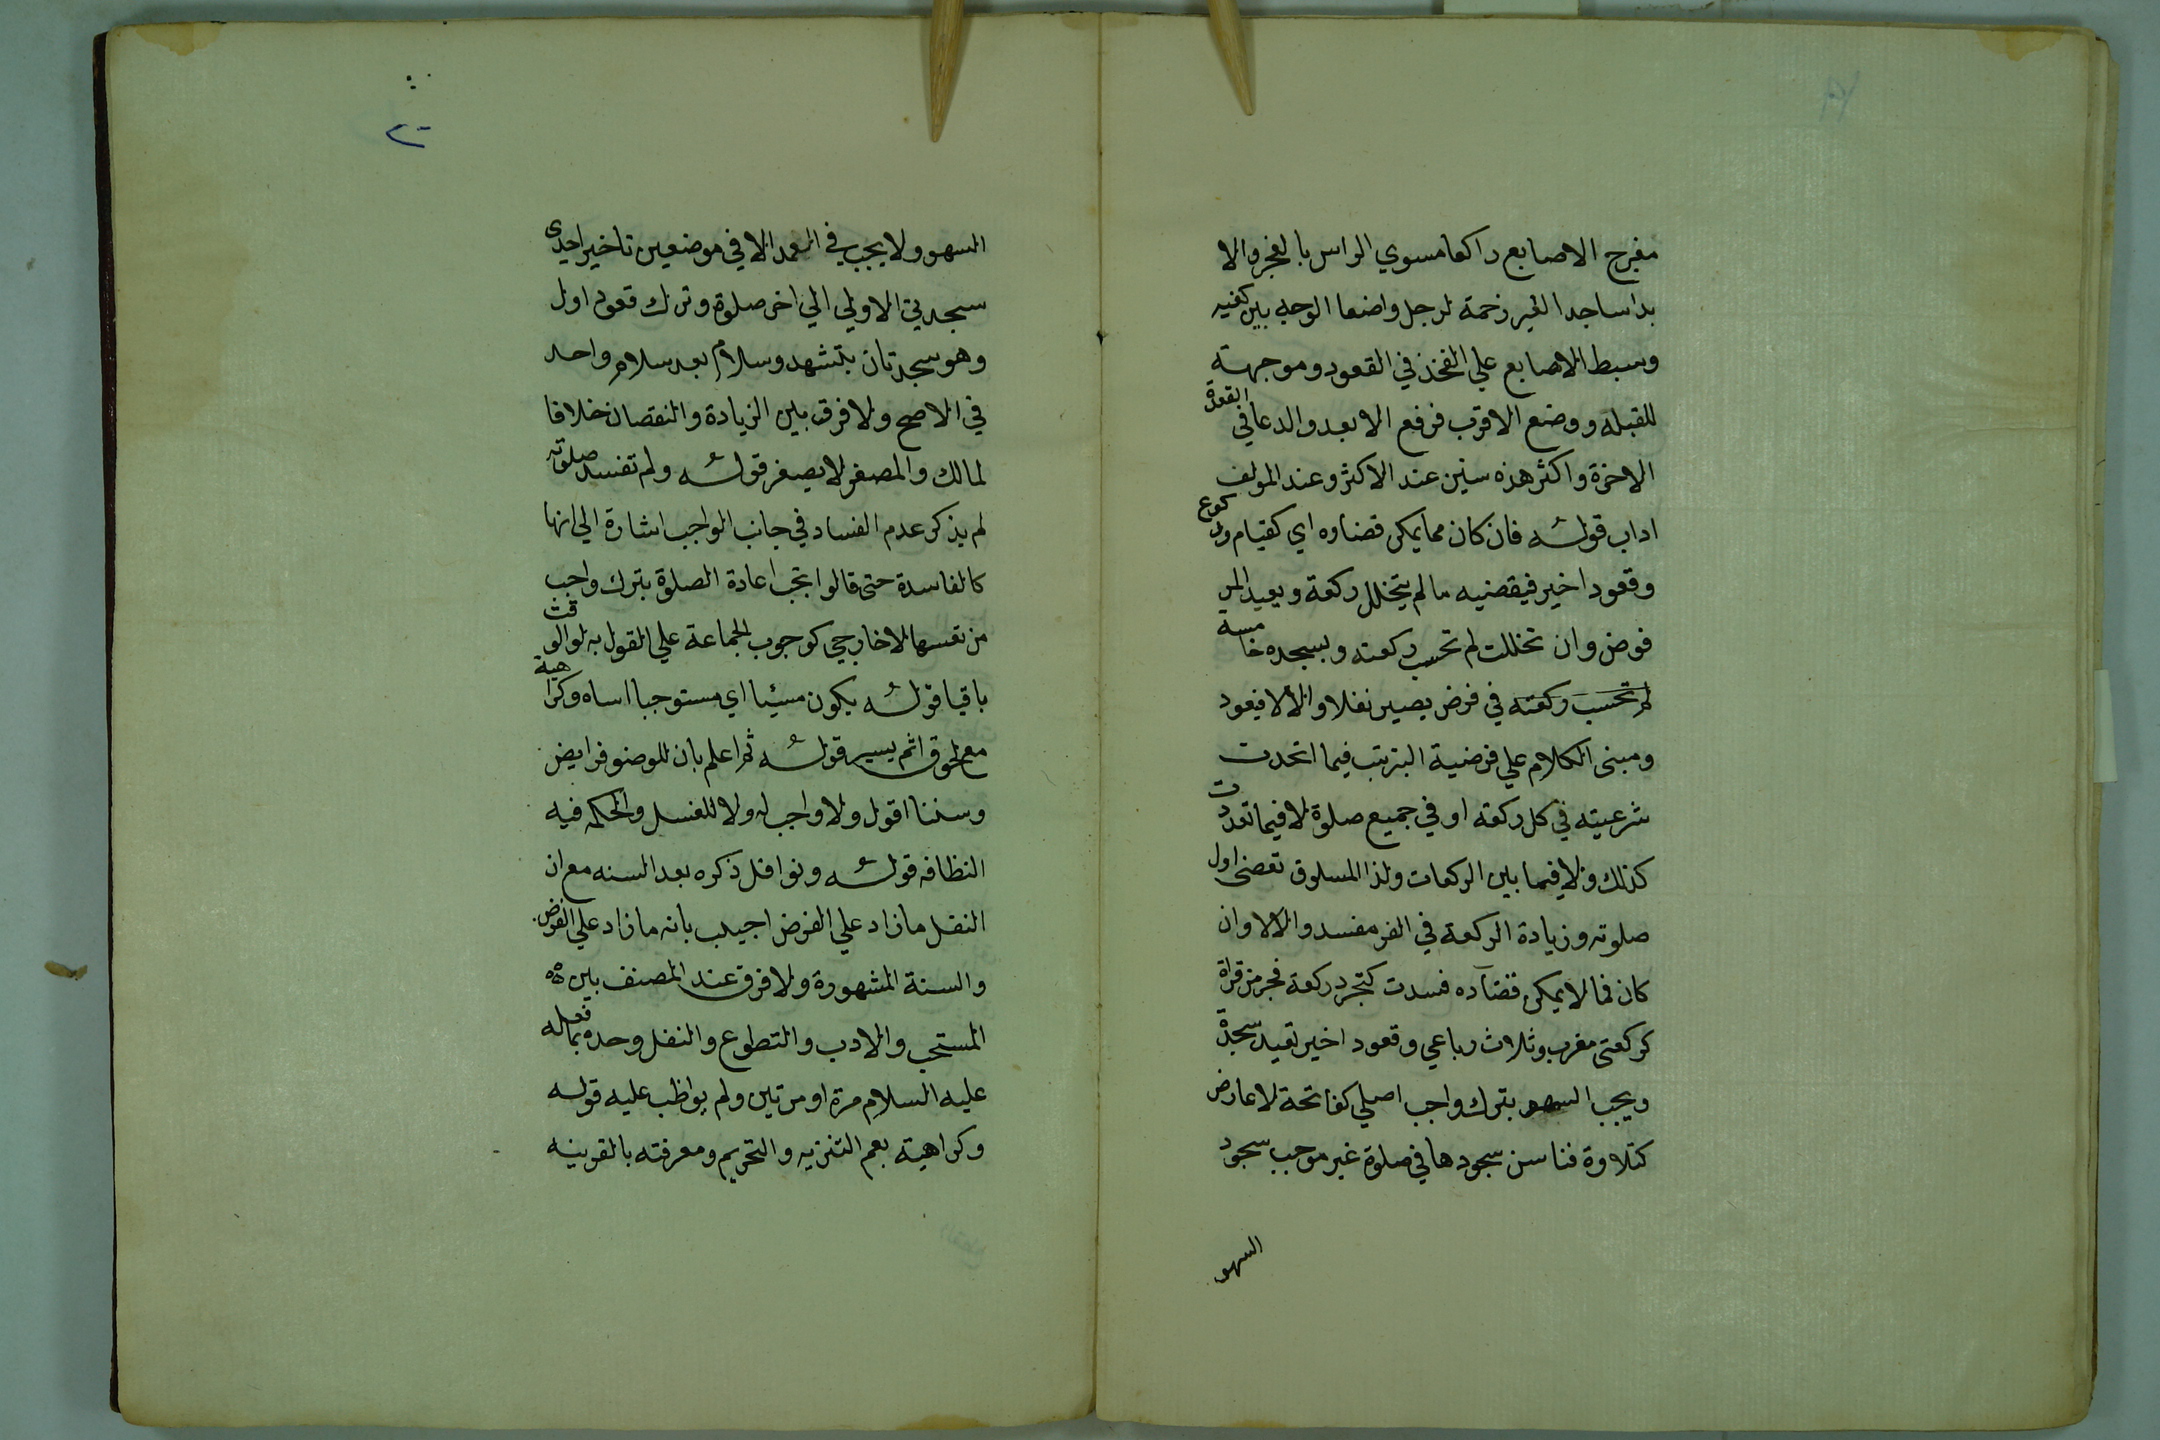 مفرج الاصابع راكعا مسوي الراس بالعجز والا
بدا ساجدا لغير زحمة لرجل واضعا الوجه بين كفيه
وبسط الاصابع علي الفخذ في القعود وموجهته
للقبلة ووضع الاقرب فرفع الابعد والدعا في القعدة
الاخرة واكثر هذه سنن عند الاكثر وعند المولف
اداب قوله فان كان مما يمكن قضاوه اي كقيام وركوع
وقعود اخير فيقضيه ما لم يتخلل ركعة ويعيد المر
فوض وان تخللت لم تحسب ركعته وبسجده خامسة
لم تحسب ركعته في فرض يصير نفلا والا لا فيعود
ومبنى الكلام علي فرضية الترتيب فيما اتحدت
شرعيته في كل ركعة او في جميع صلوة لا فيما تعددت
كذلك ولا فيما بين الركعات ولذا المسبوق تقضى اول
صلوته وزيادة الركعة في الفر مفسد والا لا وان
كان فما لا يمكن قضآده فسدت كتجرد ركعة فجر من قراة
كركعتى مغرب وثلاث رباعي وقعود اخير تقيد سجدة
ويجب السهو بترك واجب اصلي كفاتحة لا عارض
كتلاوة فناسن سجودها في صلوة غير موجب سجود
السهو
السهو ولا يجب في العمد الا في موضعين تاخير احدى
سجدتي الاولي الي اخر صلوة وترك قعود اول
وهو سجدتان بتشهد وسلام بعد سلام واحد
في الاصح ولا فرق بين الزيادة والنقصان خلافا
لمالك والمصغر لا يصغر قوله ولم تفسد صلوته
لم يذكر عدم الفساد في جانب الواجب اشارة الي انها
كالفاسدة حتى قالوا تجب اعادة الصلوة بترك واجب
من نفسها لا خارجي كوجوب الجماعة علي القول به لو الوقت
باقيا قوله يكون مسيئا اي مستوجبا اساه وكراهية
مع لحوق اثم يسير قوله ثم اعلم بان للوضو فرايض
وسننا اقول ولا واجب له ولا للغسل والحكمه فيه
النظافه قوله ونوافل ذكره بعد السنه مع ان
النفل ما زاد علي الفرض اجيب بانه ما زاد علي الفرض
والسنة المشهورة ولا فرق عند المصنف بين
المستحب والادب والتطوع والنفل وحده بما فعله
عليه السلام مرة او مرتين ولم يواظب عليه قوله
وكراهية بعم التنزيه والتحريم ومعرفته بالقرينه